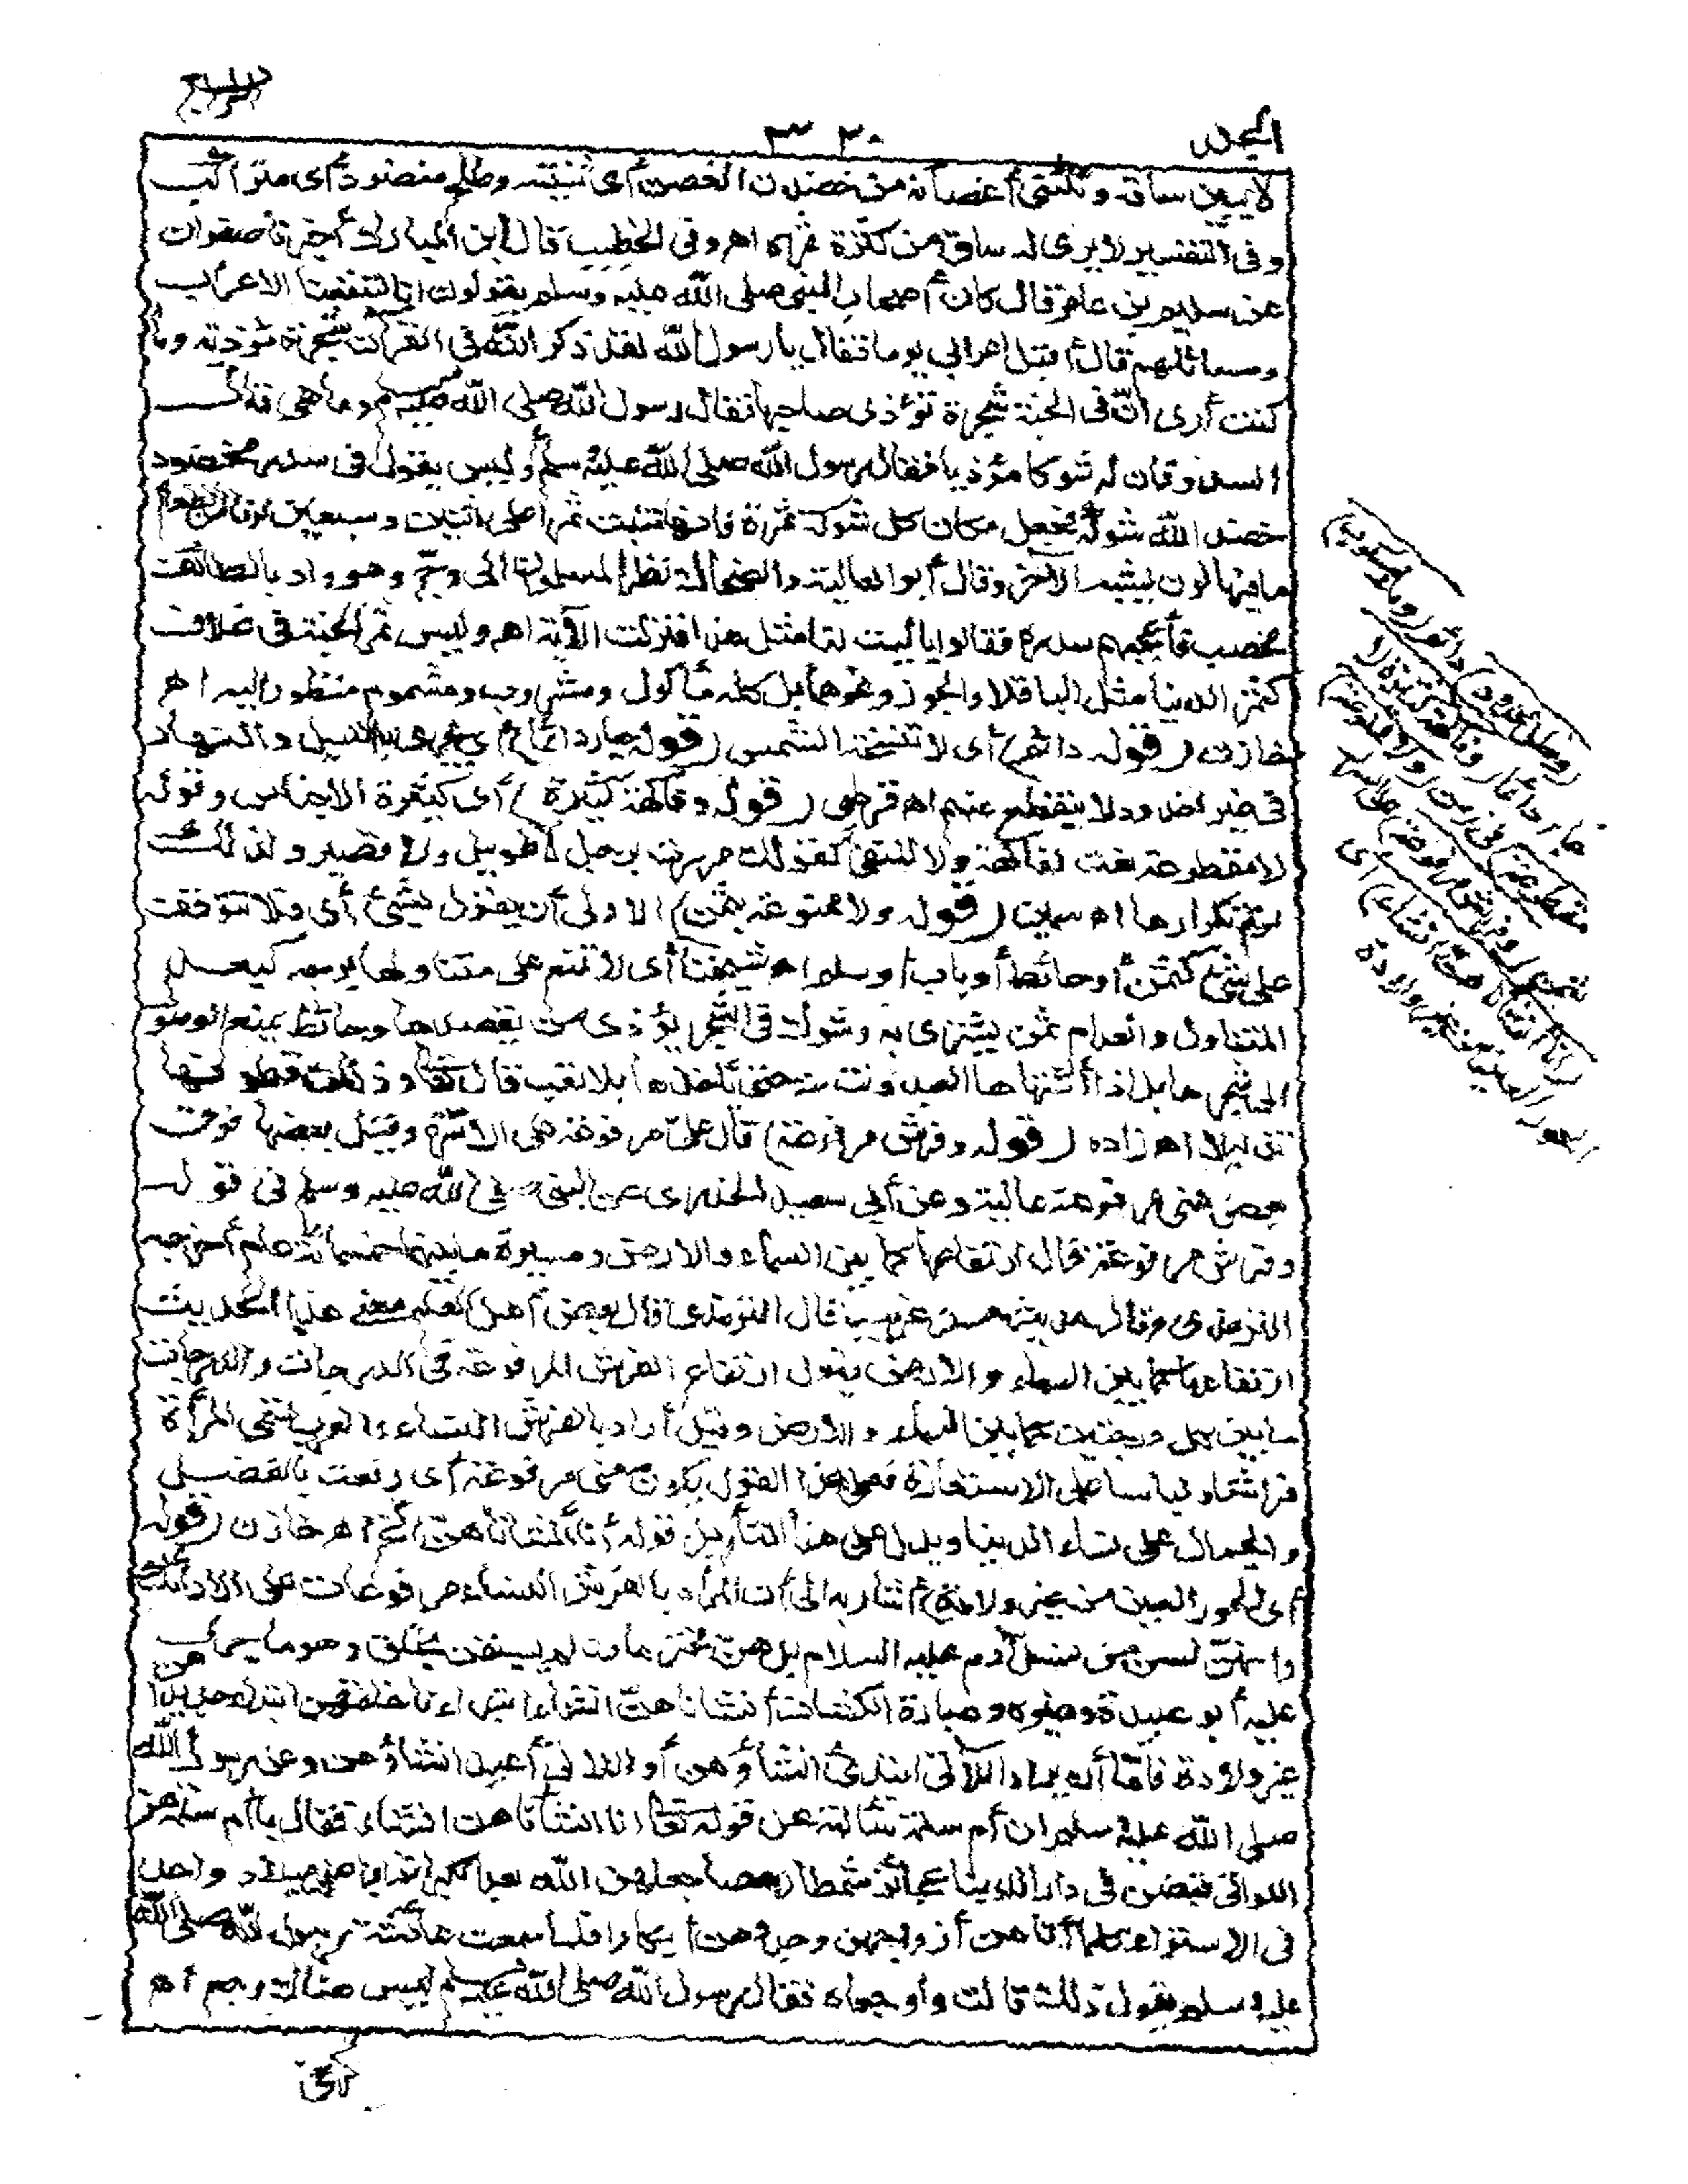 الرابع
الجزء
٣٢٠
لا يبين ساقه وتنثني أغصانه من خضدت الغصن أي ثنيته وطلح منضود أي متراكب
وفي التفسير لا يرى له ساق من كثرة ثمره اهـ وفي الخطيب قال ابن المبارك أخبرنا صفوان
عن سليم بن عامر قال كان أصحاب النبي صلى الله عليه وسلم يقولون انا لتنفعنا الاعراب
ومسائلهم قال أقبل اعرابي يوما فقال يا رسول الله لقد ذكر الله في القرآن شجرة مؤذية وما
كنت أرى ان في الجنة شجرة تؤذي صاحبها فقال رسول الله صلى الله عليه وسلم وما هي قال
السدر فان له شوكا مؤذيا فقال رسول الله صلى الله عليه وسلم أو ليس يقول في سدر مخضود
خضد الله شوكه فجعل مكان كل شوكة ثمرة فانها تنبت ثمرا على اثنين وسبعين لونا من الطعام
ما فيها لون يشبه الآخر وقال أبو العالية والضحاك نظر المسلمون الى وج وهو واد بالطائف
مخصب فأعجبهم سدره فقالوا يا ليت لنا مثل هذا فنزلت الآية اهـ وليس ثمر الجنة في غلاف
كثمر الدنيا مثل الباقلا والجوز ونحوهما بل كله مأكول ومشروب ومشموم ومنظور اليه اهـ
خازن (قوله دائم) أي لا تنسخه الشمس (قوله جار دائما) أي يجري بالليل والنهار
في غير أخدود لا ينقطع عنهم اهـ قرطبي (قوله وفاكهة كثيرة) أي كثيرة الاجناس وقوله
لا مقطوعة نعت لفاكهة ولا للنفي كقولك مررت برجل لا طويل ولا قصير ولذلك
لزم تكرارها اهـ سمين (قوله ولا ممنوعة بثمن) الاولى أن يقول بشئ أي ولا تتوقف
على شئ كثمن أو حائط أو باب أو سلم اهـ شيخنا أي لا تمنع على متناولها بوجه كبعد
المتناول وانعدام ثمن يشترى به وشوك في الشجر يؤذي من يقصدها وحائط يمنع الوصول
الى شجرها بل اذا اشتهاها العبد دنت منه حتى يأخذها بلا تعب قال تعالى وذللت قطوفها
تذليلا اهـ زاده (قوله وفرش مرفوعة) قال علي مرفوعة على الاسرة وقيل بعضها فوق
بعض فهي مرفوعة عالية وعن أبي سعيد الخدري عن النبي صلى الله عليه وسلم في قوله
وفرش مرفوعة قال ارتفاعها كما بين السماء والارض ومسيرة ما بينهما خمسمائة عام أخرجه
الترمذي وقال حديث حسن غريب قال الترمذي قال بعض أهل العلم معنى هذا الحديث
ارتفاعها كما بين السماء والارض يقول ارتفاع الفرش المرفوعة في الدرجات والدرجات
ما بين كل درجتين كما بين السماء والارض وقيل أراد بالفرش النساء والعرب تسمى المرأة
فراشا ولباسا على الاستعارة فعلى هذا القول يكون معنى مرفوعة أي رفعت بالفضل
والجمال على نساء الدنيا ويدل على هذا التأويل قوله أنا أنشأناهن الخ اهـ خازن (قوله
أي الحور العين من غير ولادة) أشار به الى أن المراد بالفرش النساء مرفوعات على الارائك
وانهن لسن من نسل آدم عليه السلام بل هن مخترعات لم يسبقن بخلق وهو ما جرى
عليه أبو عبيدة وغيره وعبارة الكشاف أنشأناهن انشاء ابتدأناخلقهن ابتداء جديدا من
غير ولادة فاما أن يراد اللاتي ابتدئ انشاؤهن أو اللاتي أعيد انشاؤهن وعن رسول الله
صلى الله عليه وسلم ان أم سلمة سألته عن قوله تعالى انا أنشأناهن انشاء فقال يا أم سلمة هن
اللواتي قبضن في دار الدنيا عجائز شمطا رمصا جعلهن الله بعد الكبر أترابا على ميلاد واحد
في الاستواء كلما أتاهن أزواجهن وجدوهن أبكارا فلما سمعت عائشة رسول الله صلى الله
عليه وسلم يقول ذلك قالت واوجعاه فقال رسول الله صلى الله عليه وسلم ليس هناك وجع اهـ
(وظل ممدود) دائم (وماء مسكوب)
جار دائما (وفاكهة كثيرة لا
مقطوعة) في زمن (ولا ممنوعة)
بثمن (وفرش مرفوعة) على السرر
(انا أنشأناهن انشاء) أي
الحور العين من غير ولادة